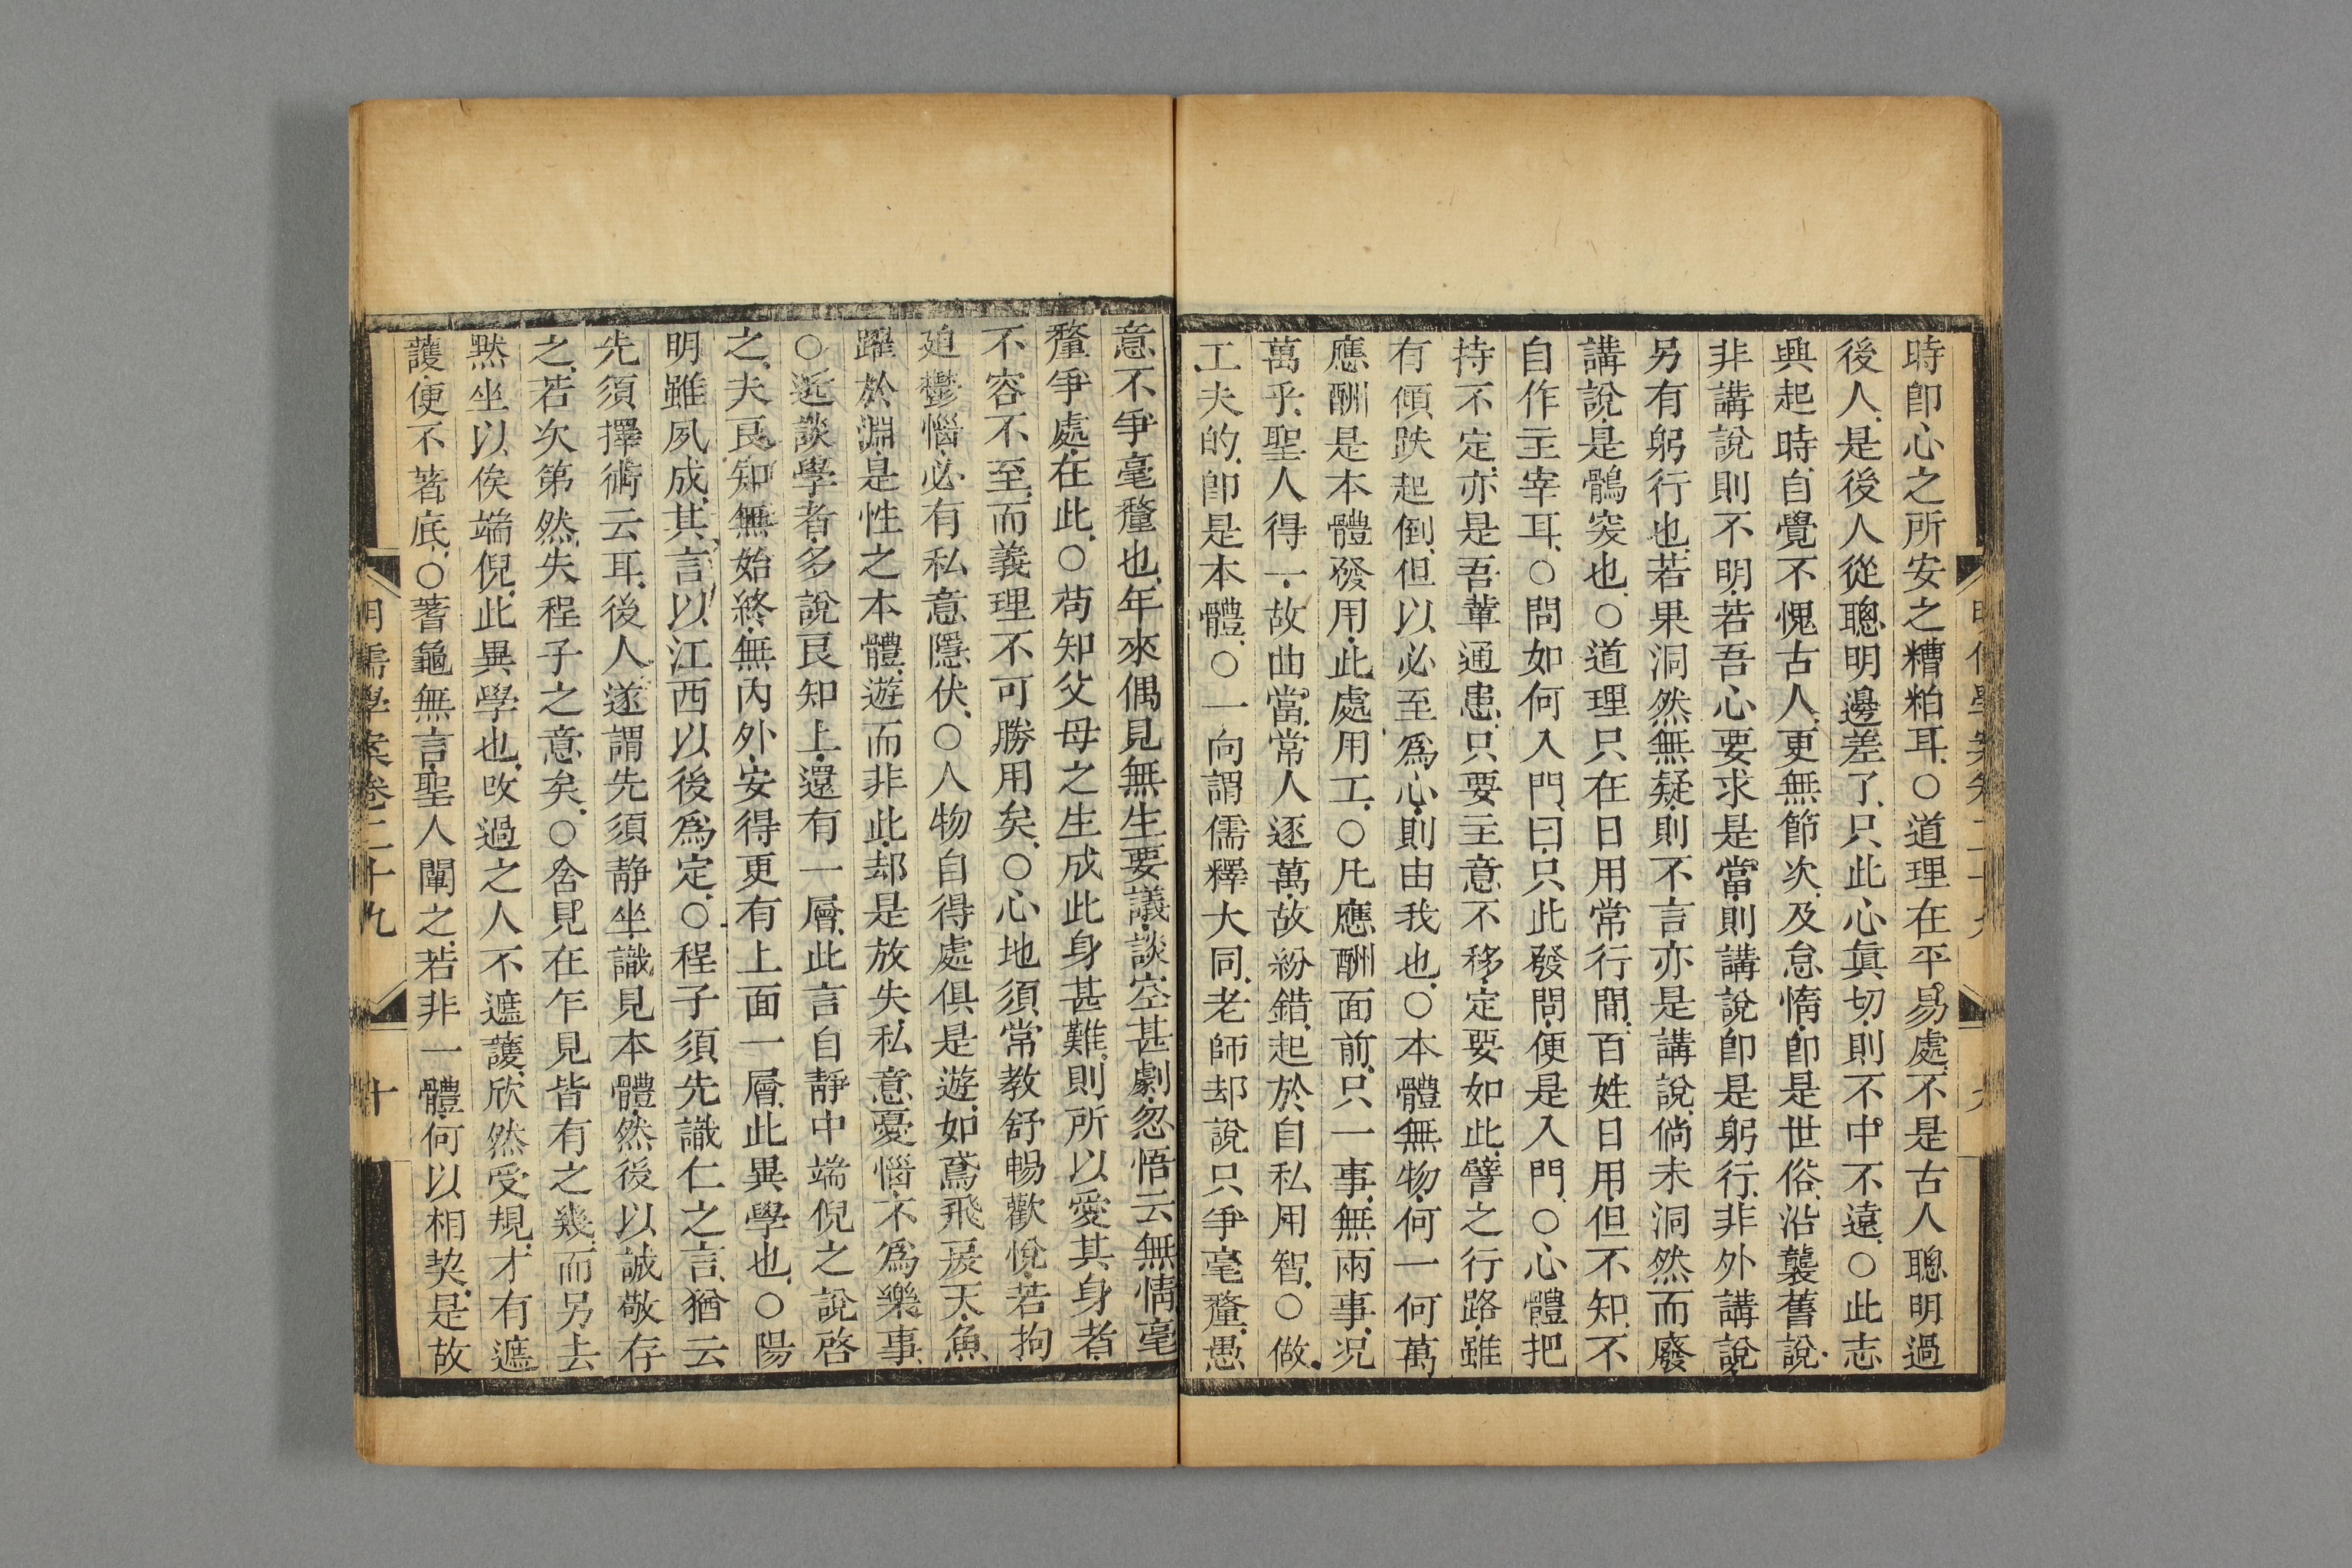 時卽心之所安之糟粕耳○道理在平易處不是古人聰明過
後人是後人從聰明邊差了只此心眞切則不中不遠○此志
興起時自覺不愧古人更無節次及怠惰卽是世俗沿襲舊說
非講說則不明若吾心要求是當則講說卽是躬行非外講說
另有躬行也若果洞然無疑則不言亦是講說倘未洞然而廢
講說是鶻突也○道理只在日用常行間百姓日用但不知不
自作主宰耳○問如何入門曰只此發問便是入門○心體把
持不定亦是吾輩通患只要主意不移定要如此譬之行路雖
有傾跌起倒但以必至爲心則由我也○本體無物何一何萬
應酬是本體發用此處用工○凡應酬面前只一事無兩事况
萬乎聖人得一故曲當常人逐萬故紛錯起於自私用智○做
工夫的卽是本體○一向謂儒釋大同老師却說只爭毫釐愚
意不爭毫釐也年來偶見無生要議談空甚劇忽悟云無情毫
釐爭處在此○苟知父母之生成此身甚難則所以愛其身者
不容不至而義理不可勝用矣○心地須常教舒暢歡悅若拘
廹鬱惱必有私意隱伏○人物自得處俱是遊如鳶飛戾天魚
躍於淵是性之本體遊而非此却是放失私意憂惱不爲樂事
○近談學者多說良知上還有一層此言自靜中端倪之說啓
之夫良知無始終無內外安得更有上面一層此異學也○陽
明雖夙成其言以江西以後爲定○程子須先識仁之言猶云
先須擇術云耳後人遂謂先須靜坐識見本體然後以誠敬存
之若次第然失程子之意矣○舍見在乍見皆有之幾而另去
默坐以俟端倪此異學也改過之人不遮護欣然受規才有遮
護便不著底○蓍龜無言聖人闡之若非一體何以相契是故
明儒學案卷二十九 十